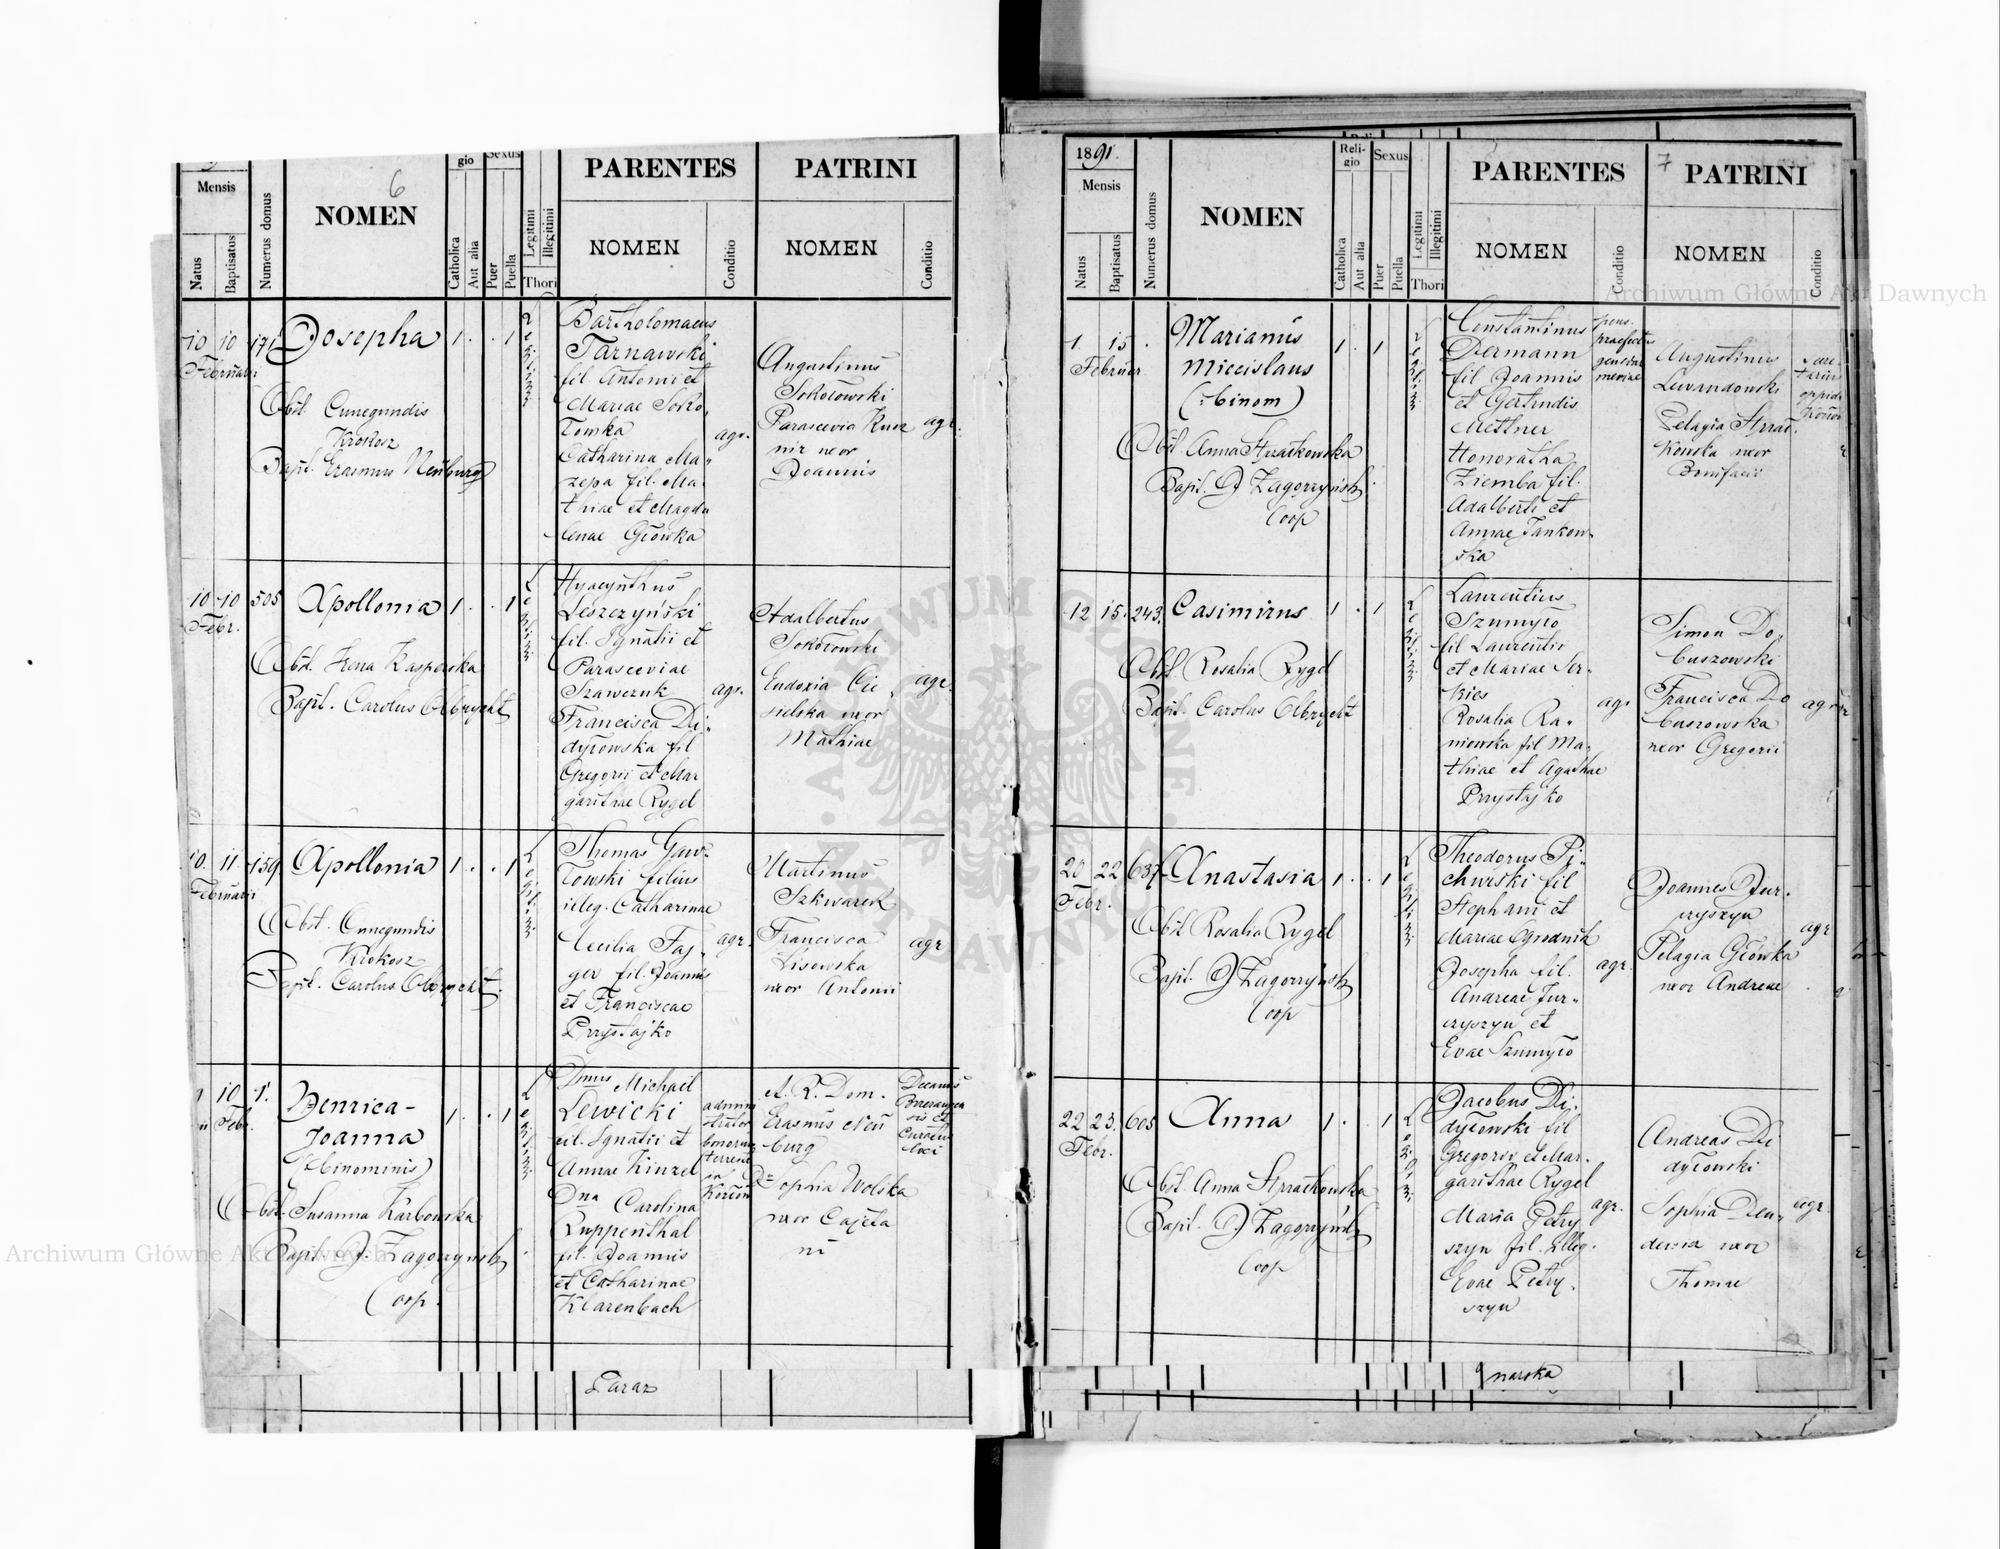 6
Mensis
Natus
Baptisatus
Numerus domus
NOMEN
gio
Catholica
Aut alia
Sexus
Puer
Puella
Legitimi
Illegitimi
Thori
PARENTES
NOMEN
Conditio
PATRINI
NOMEN
Conditio
10 10 171 Josepha 1 . . 1
Februarii
Obst. Cunegundis
Krokosz
Bapt. Erasmus Neuburg
Bartholomaeus
Tarnawski
fil. Antonii et
Mariae Soko-
łowska
Catharina Ma-
zepa fil. Ma-
thiae et Magda
lenae Głowka
agr.
Augustinus
Sokołowski
Parascevia Kusz
nir uxor
Joannis
agr.
10 10 505 Apollonia 1 . . 1
Febr.
Obst. Irena Kasperska
Bapt. Carolus Olbrycht
Hyacynthus
Leszczyński
fil. Ignatii et
Parasceviae
Szawczuk
Francisca Di-
dyłowska fil
Gregorii et Mar
garithae Rygel
agr.
Adalbertus
Sokołowski
Eudoxia Cie-
sielska uxor
Mathiae
agr.
10. 11 159 Apollonia 1 . . 1
Februarii
Obst. Cunegundis
Krokosz
Bapt. Carolus Olbrycht
Thomas Gaw-
łowski filius
illeg. Catharinae
Cecilia Faj-
ger fil. Joannis
et Franciscae
Przystajko
agr.
Martinus
Szkwarek
Francisca
Lisowska
uxor Antonii
agr
10 1.
Febr.
Henrica-
Joanna
(:binominis)
1 . . 1
Obst. Susanna Karbowska
Bapt. J. Zagorzyński
Coop.
Dnus Michaël
Lewicki
fil. Ignatii et
Annae Kinzel
Dna Carolina
Ruppenthal
fil. Joannis
et Catharinae
Klarenbach
admini
strator
bonorum
A. R. Dom.
Erasmus Neu
burg
Sophia Wolska
uxor Cajeta
ni
Decanus
Brzezanen
sis et
Curatus
loci
Paraz
1891.
7
Mensis
Natus
Baptisatus
Numerus domus
NOMEN
Reli-
gio
Catholica
Aut alia
Sexus
Puer
Puella
Legitimi
Illegitimi
Thori
PARENTES
NOMEN
Conditio
PATRINI
NOMEN
Conditio
1. 15 .
Februar.
Marianus
Miecislaus
(:binom)
1 . 1
Obst. Anna Strzałkowska
Bapt. J Zagorzyński
Coop
Constantinus
Dermann
fil Joannis
et Gertrudis
Mettner
Honoratha
Ziemba fil.
Adalberti et
Annae Jankow-
ska
pens.
praefectus
gendar
meriae
Augustinus
Lewandowski
Pelagia Strzał-
kowska uxor
Bonifacii
secre-
tarius
12 15. 243. Casimirus 1 . 1
Obst. Rosalia Rygel
Bapt. Carolus Olbrycht
Laurentius
Szumyło
fil Laurentii
et Mariae Ser-
kies
Rosalia Ra-
niowska fil Ma-
thiae et Agathae
Przystajko
agr
Simon Do-
buszowski
Francisca Do
buszowska
uxor Gregorii
20 22 637 Anastasia 1 . . 1
Febr.
Obst Rosalia Rygel
Bapt. J Zagorzyński
Coop
Theodorus Pi-
churski fil
Stephani et
Mariae Ogrodnik
Josepha fil.
Andreae Jur-
czyszyn et
Evae Szumyło
agr.
Joannes Jur-
czyszyn
Pelagia Główka
uxor Andreae
agr
22 23. 605 Anna 1 . . 1
Febr.
Obst. Anna Strzałkowska
Bapt. J Zagorzyński
Coop
Jacobus Di-
dyłowski fil
Gregorii et Mar-
garithae Rygel
Maria Petry
szyn fil. illeg.
Evae Petry-
szyn
agr.
Andreas Di
dyłowski
Sophia Den-
dewicz uxor
Thomae
agr.
narska
Archiwum Główne Akt Dawnych
Archiwum Główne Akt Dawnych
ARCHIWUM GŁÓWNE AKT DAWNYCH